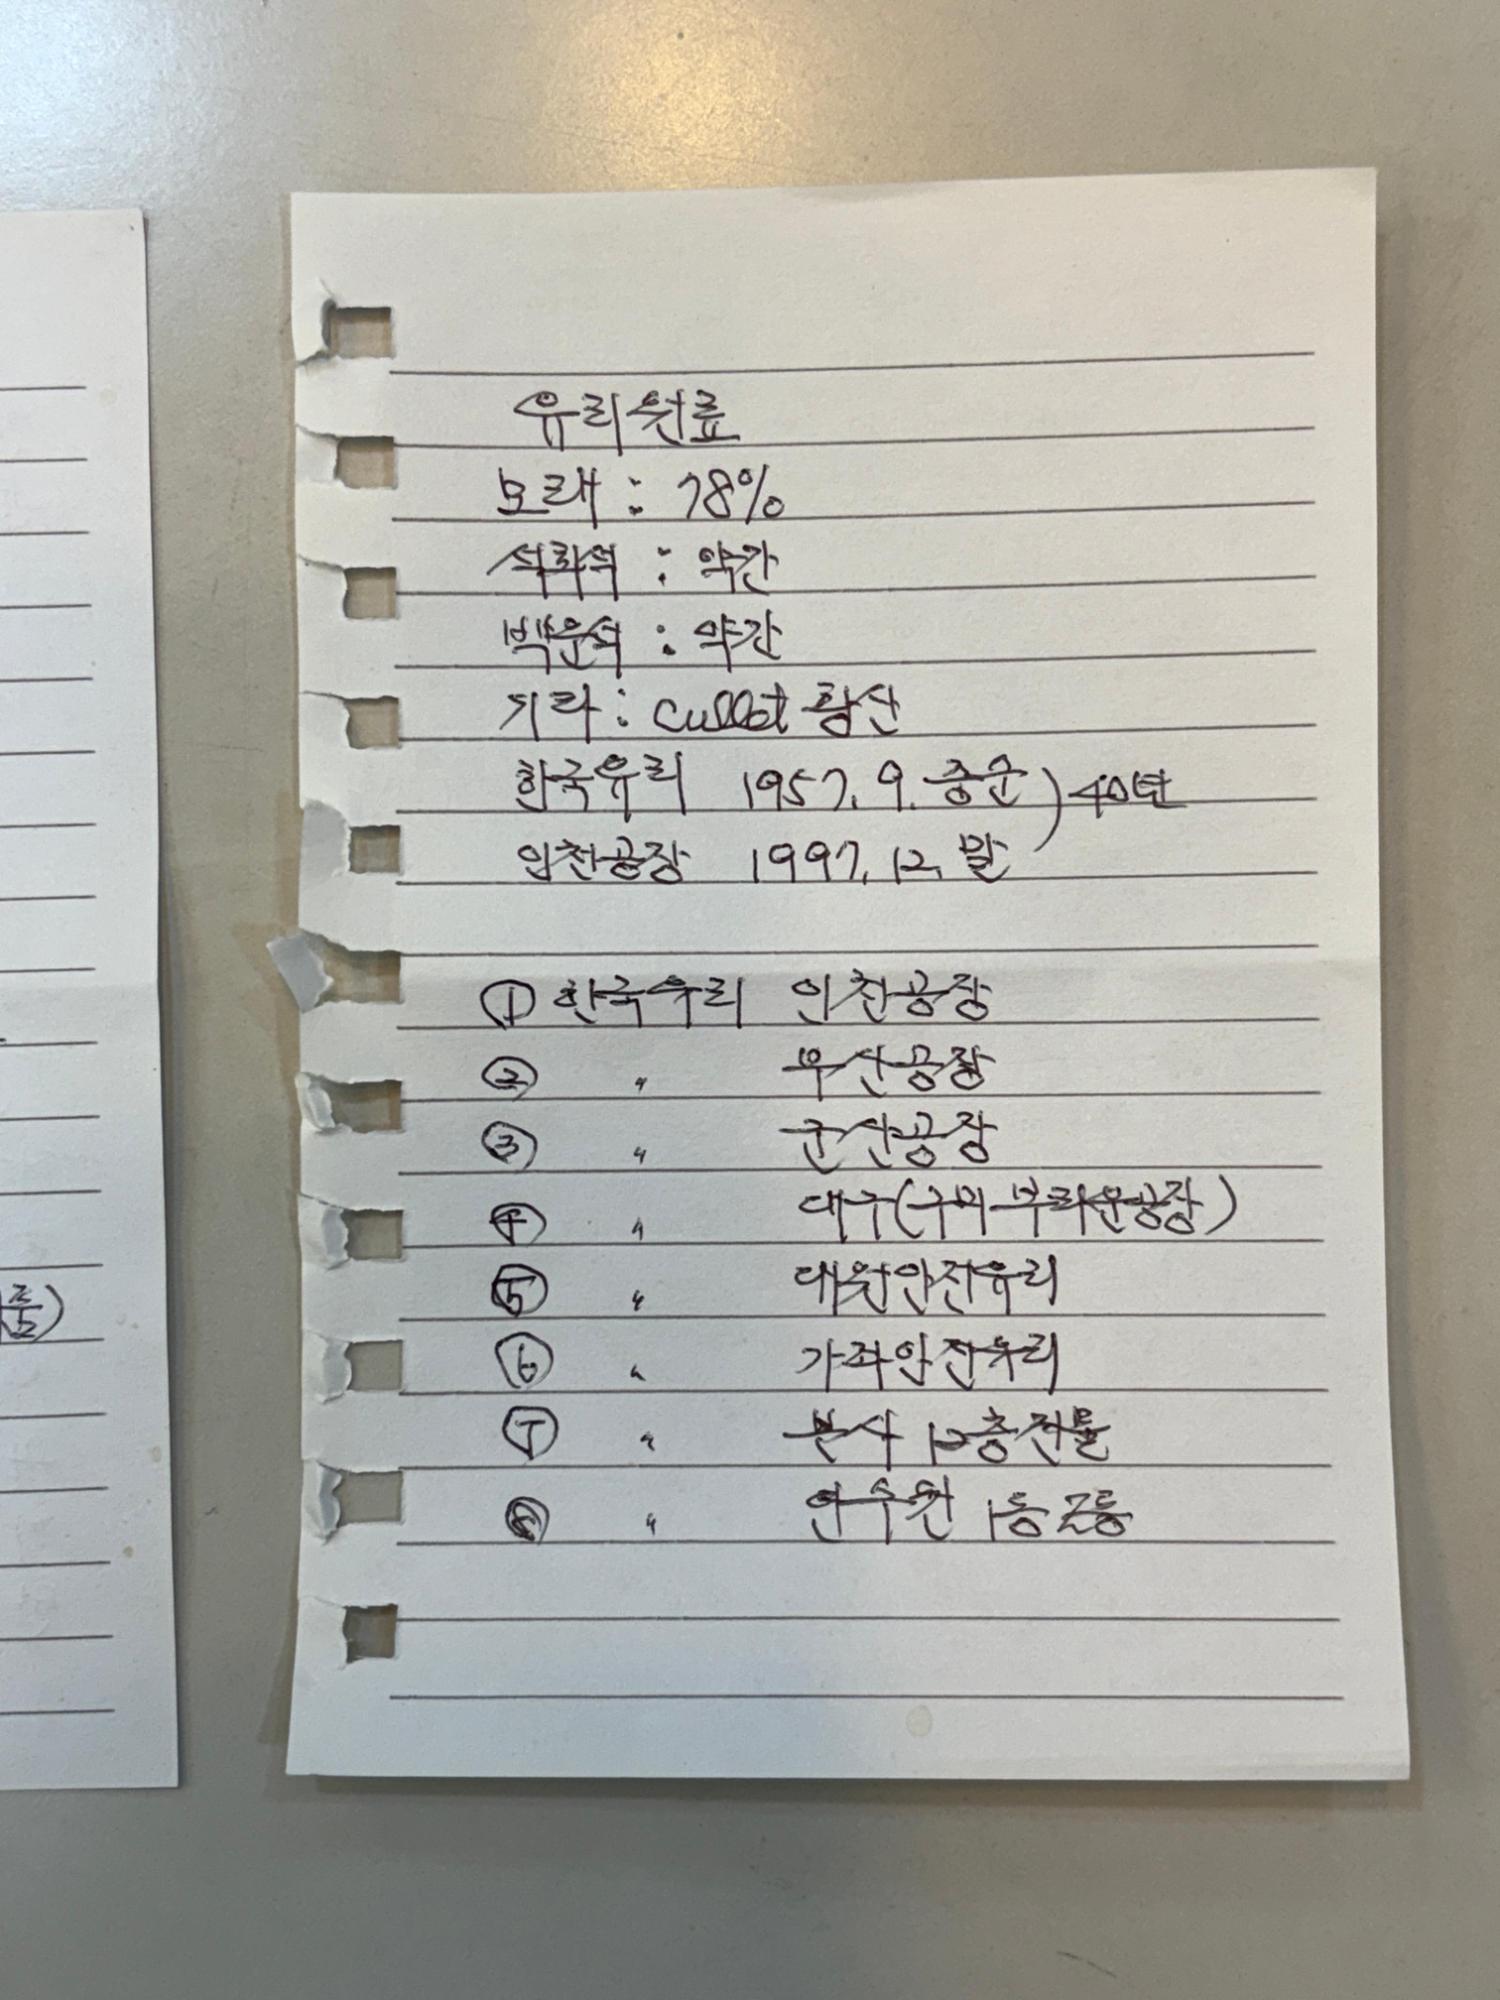 유리원료
모래 : 78%
석회석 : 약간
백운석 : 약간
기타 : cullet 황산
한국유리 1957. 9. 중순 ) 40년
인천공장 1997. 12. 말
① 한국유리 인천공장
② 〃 부산공장
③ 〃 군산공장
④ 〃 대구(구미 브라운공장)
⑤ 〃 대원안전유리
⑥ 〃 가좌안전유리
⑦ 〃 본사 12층건물
⑧ 〃 연수원 1동 2동